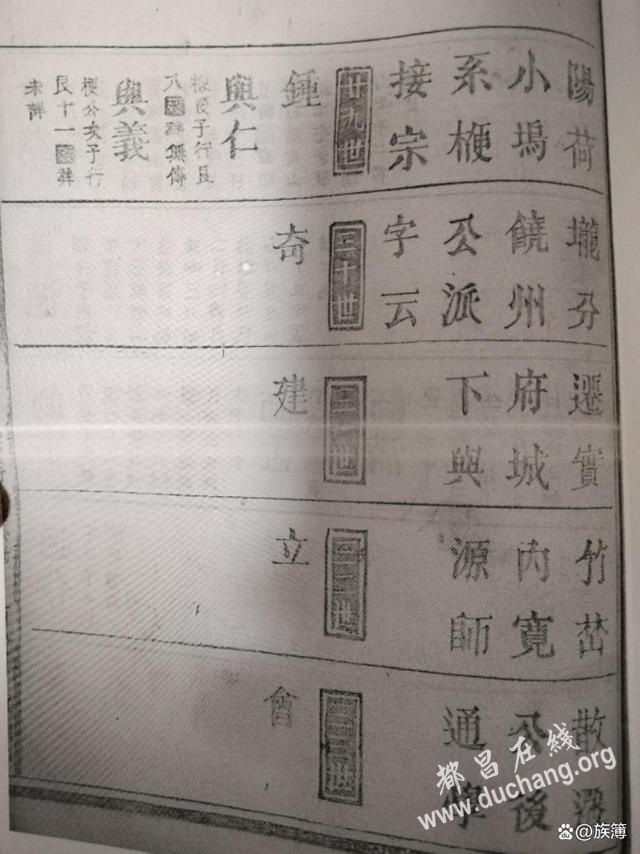 陽荷壠分遷實竹散
小塢饒州府城內寬公後
系梗公派下與源師通修
接宗字云
廿九世 三十世 三一世 三二世 三三世
鍾 奇 建 立 會
與仁
梗長子行艮
八葬無傳
與義
梗公次子行
艮十一葬
未詳
都昌在线
www.duchang.org
@族簿